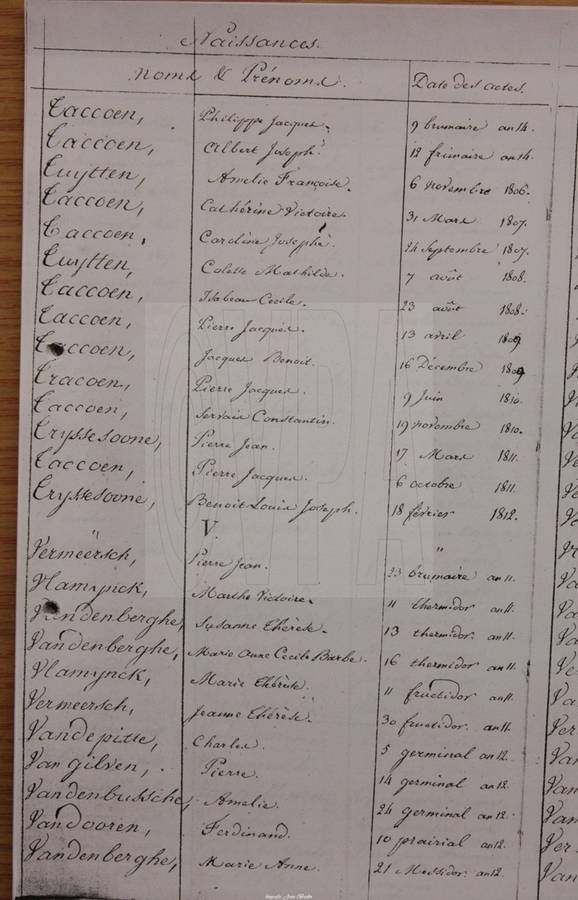 Naissances.
Noms & Prénoms. Date des actes.
Taccoen, Philippe Jacques, 9 brumaire an 14.
Taccoen, Albert Joseph. 12 frimaire an 14.
Tuytten, Amelie Françoise. 6 novembre 1806.
Taccoen, Cathérine Victoire. 31 Mars 1807.
Taccoen, Caroline Josephe. 24 Septembre 1807.
Tuytten, Colette Mathilde. 7 août 1808.
Taccoen, Isabeau Cecile. 23 août 1808.
Taccoen, Pierre Jacques. 13 avril 1809
Taccoen, Jacques Benoit. 16 Décembre 1809
Tracoen, Pierre Jacques. 9 Juin 1810.
Taccoen, Servais Constantin. 19 novembre 1810.
Tryssesoone, Pierre Jean. 17 Mars 1811.
Taccoen, Pierre Jacques. 6 octobre 1811.
Tryssesoone, Benoit Louis Joseph. 18 février 1812.
V. "
Vermeërsch, Pierre Jean. 23 brumaire an 11.
Vlamynck, Marthe Victoire. 11 thermidor an 11.
Vandenberghe, Susanne Thérèse. 13 thermidor. an 11.
Vandenberghe, Marie Anne Cecile Barbe. 16 thermidor an 11.
Vlamynck, Marie Thérèse. 11 fructidor an 11.
Vermeersch, Jeanne Thérèse. 30 fructidor. an 11.
Vandepitte, Charles. 5 germinal an 12.
Van gilven, Pierre. 14 germinal an 12.
Vandenbussche, Amelie. 24 germinal an 12.
Vandooren, Ferdinand. 10 prairial an 12.
Vandenberghe, Marie Anne. 21 Messidor. an 12.